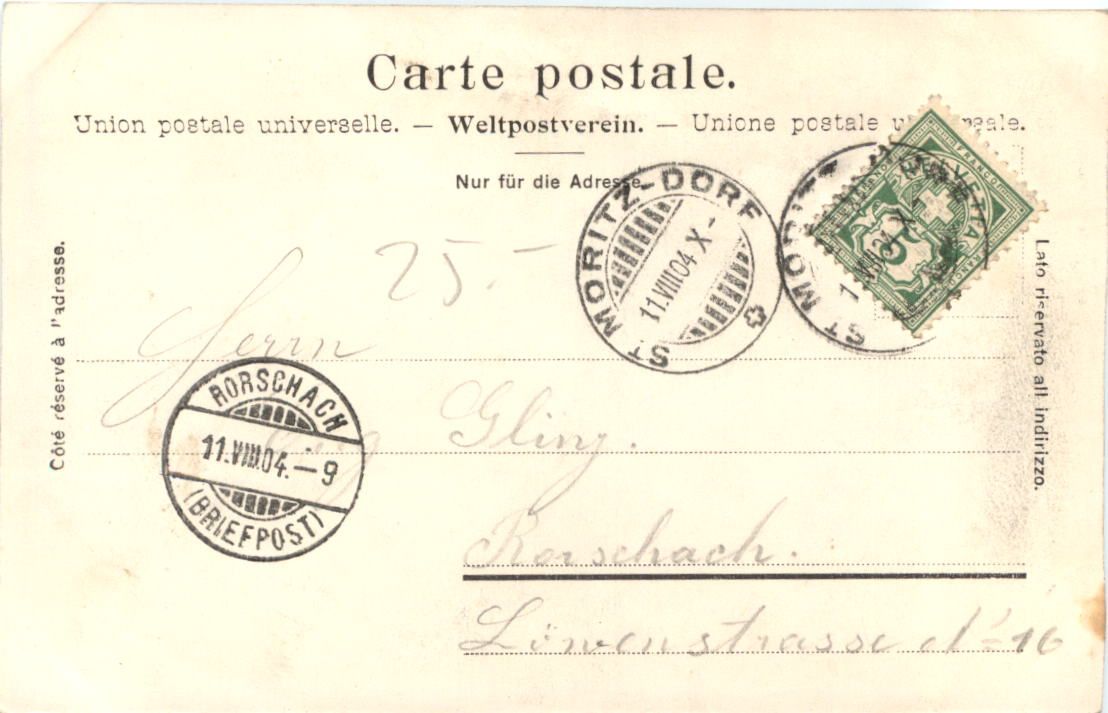 Carte postale.
Union postale universelle. — Weltpostverein. — Unione postale universale.
Nur für die Adresse.
Côté réservé à l'adresse.
Lato riservato all indirizzo.
25.-
ST MORITZ-DORF
11.VIII.04 X-
ST MORITZ
11.VIII.04 X-
HELVETIA
FRANCO
5
Herrn
Gling.
RORSCHACH
11.VIII.04.-9
(BRIEFPOST)
Rorschach.
Löwenstrasse No 16